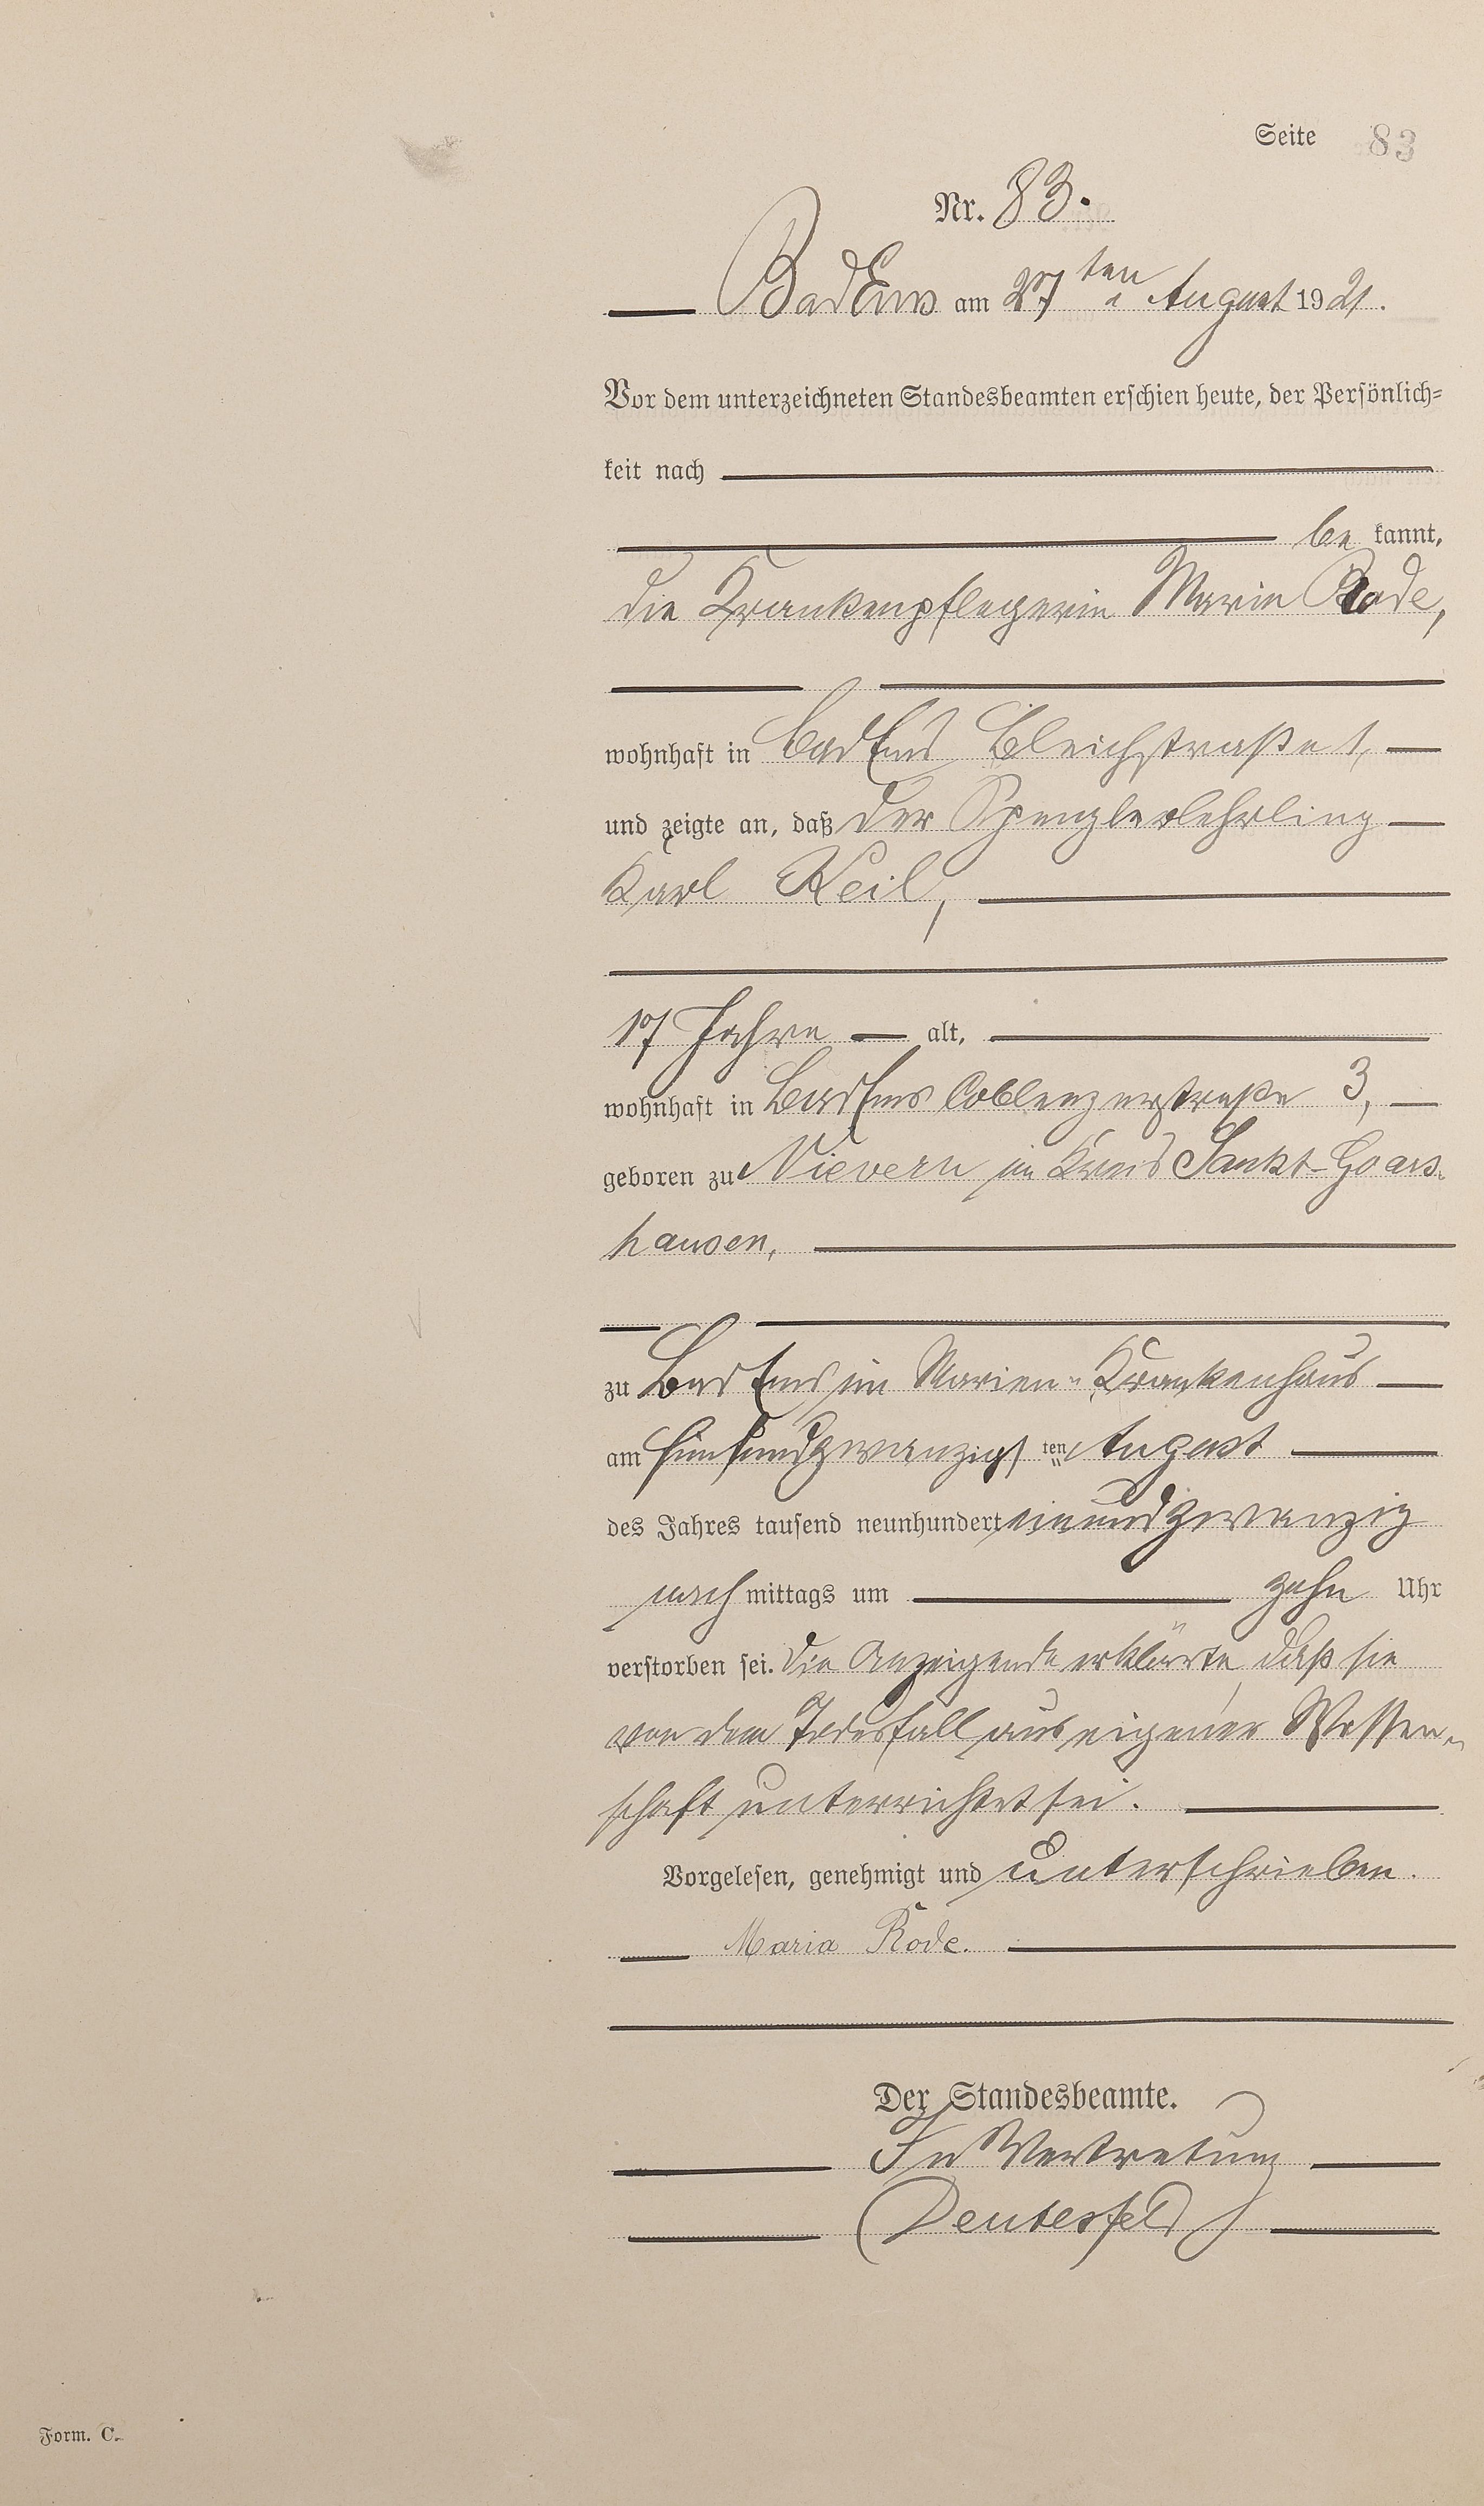 Seite 83
Nr. 83.
Bad Ems am 27ten August 1921.
Vor dem unterzeichneten Standesbeamten erschien heute, der Persönlich=
keit nach
be kannt,
die Krankenpflegerin Maria Rode,
wohnhaft in Bad Ems Bleichstraße 1,
und zeigte an, daß der Spenglerlehrling
Karl Keil,
17 Jahre alt,
wohnhaft in Bad Ems Coblenzerstraße 3,
geboren zu Nievern im Kreis Sankt-Goars-
hausen,
zu Bad Ems im Marien-Krankenhaus
am fünfundzwanzigsten August
des Jahres tausend neunhundert einundzwanzig
nach mittags um zehn Uhr
verstorben sei. Die Anzeigende erklärte, daß sie
von dem Todesfall aus eigener Wissen-
schaft unterrichtet sei.
Vorgelesen, genehmigt und unterschrieben.
Maria Rode.
Der Standesbeamte.
In Vertretung
Deutesfeld
Form. C.